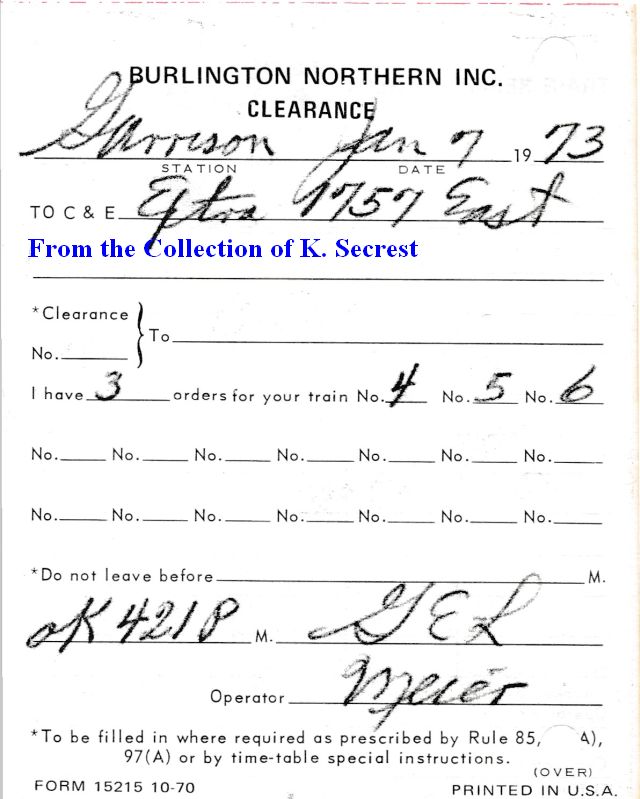 BURLINGTON NORTHERN INC.
CLEARANCE
Garrison Jan 7 19 73
STATION DATE
TO C & E Extra 1757 East
From the Collection of K. Secrest
*Clearance
No. To
I have 3 orders for your train No. 4 No. 5 No. 6
No. No. No. No. No. No. No.
No. No. No. No. No. No. No.
*Do not leave before M.
OK 421 P M. GEL
Operator Meier
*To be filled in where required as prescribed by Rule 85, A),
97(A) or by time-table special instructions.
(OVER)
FORM 15215 10-70 PRINTED IN U.S.A.